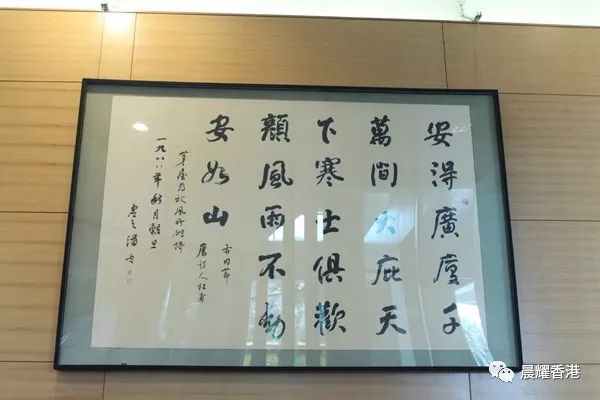 安得廣廈千
萬間大庇天
下寒士俱歡
顏風雨不動
安如山
唐詩人杜甫
茅屋為秋風所
一九八八年 月穀旦
晨耀香港